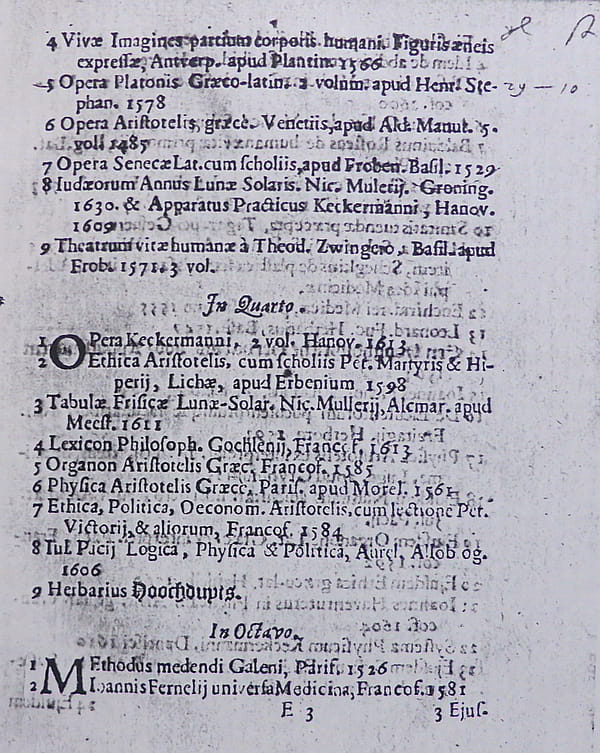 4 Vivæ Imagines partium corporis humani. Figuris æneis
expressæ, Antverp. apud Plantin. 1566
5 Opera Platonis Græco-latin. 2 volum. apud Henr. Ste-
phan. 1578
29 — 10
6 Opera Aristotelis, græcè. Venetiis, apud Ald. Manut. 5.
voll 1485
7 Opera Senecæ Lat. cum scholiis, apud Froben. Basil. 1529
8 Iudæorum Annus Lunæ Solaris. Nic. Mulerij. Groning.
1630. & Apparatus Practicus Keckermanni, Hanov.
1609
9 Theatrum vitæ humanæ à Theod. Zwingero, Basil. apud
Frob. 1571. 3 vol.
In Quarto.
1 Opera Keckermanni, 2 vol. Hanov. 1613
2 Ethica Aristotelis, cum scholiis Pet. Martyris & Hi-
perij, Lichæ, apud Erbenium 1598
3 Tabulæ Frisicæ Lunæ-Solar. Nic. Mullerij, Alcmar. apud
Meest. 1611
4 Lexicon Philosoph. Gochlenij, Francof. 1613
5 Organon Aristotelis Græc. Francof. 1585
6 Physica Aristotelis Græcè, Paris. apud Morel. 1561
7 Ethica, Politica, Oeconom. Aristotelis, cum lectione Pet.
Victorij, & aliorum, Francof. 1584
8 Iul. Pacij Logica, Physica & Politica, Aurel. Allob og.
1606
9 Herbarius Doothduyts.
In Octavo.
1 Methodus medendi Galeni, Paris. 1526
2 Ioannis Fernelij universa Medicina, Francof. 1581
E 3
3 Ejus-